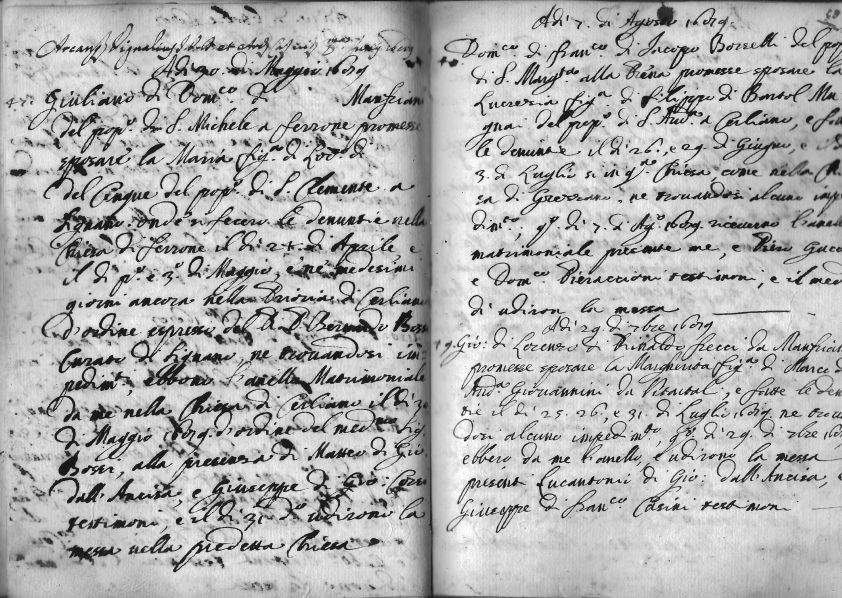 Adi 30. di Maggio 1689
Giuliano di Dom.co di Manfriani
del pop.o di S. Michele a ferrone promesse
sposare la Maria fig.a di Lod.o di
del Cinque del pop.o di S. Clemente a
onde si fecero le denuntie nella
Chiesa di ferrone il di 24. di Aprile e
il di p.o e 3. di Maggio, e ne medesimi
giorni ancora nella Prioria di Cerliano
d'ordine espresso del Bernardo Bossi
Curato di ne trovandosi im=
pedim.o, ebbero l'anello Matrimoniale
da me nella Chiesa di Cerliano il di 30
di Maggio 1689. d'ordine del med.o Sig.
Bossi, alla presenza di Matteo di Gio:
dall'Ancisa, e Giuseppe di Gio: Corsi
testimoni, e il di 31 d.o udirono la
messa nella predetta Chiesa
Adi 7. di Agosto 1689.
Dom.co di fran.co di Jacopo Borselli del pop
di S. Marg.ta alla promesse sposare la
Lucrezia fig.a di filippo di Bartol Mu
gnai del pop.o di S. And.a a Cerliano, e fatte
le denuntie il di 26., e 29. di Giugno, e il
3. di Luglio si in q.a Chiesa come nella Chie
sa di ne trovandosi alcuno imp
dim.o, q.o di 7. d'Ag.o 1689. riceverno l'anello
matrimoniale presente me, e Piero
e Dom.co Pieraccioni testimoni, e il med
di udiron la messa
Adi 29. di 7bre 1689
Gio: di Lorenzo di Rinaldo da
promesse sposare la Margherita fig.a di Marco d
And.a Giovannini da e fatte le denun
tie il di 25. 26. e 31. di Luglio 1689. ne trovan
dosi alcuno impedim.to, q.o di 29. di 7bre 1689
ebbero da me l'anello, e udirono la messa
present Lucantonio di Gio: dall'Ancisa, e
Giuseppe di fran.co Casini testimoni